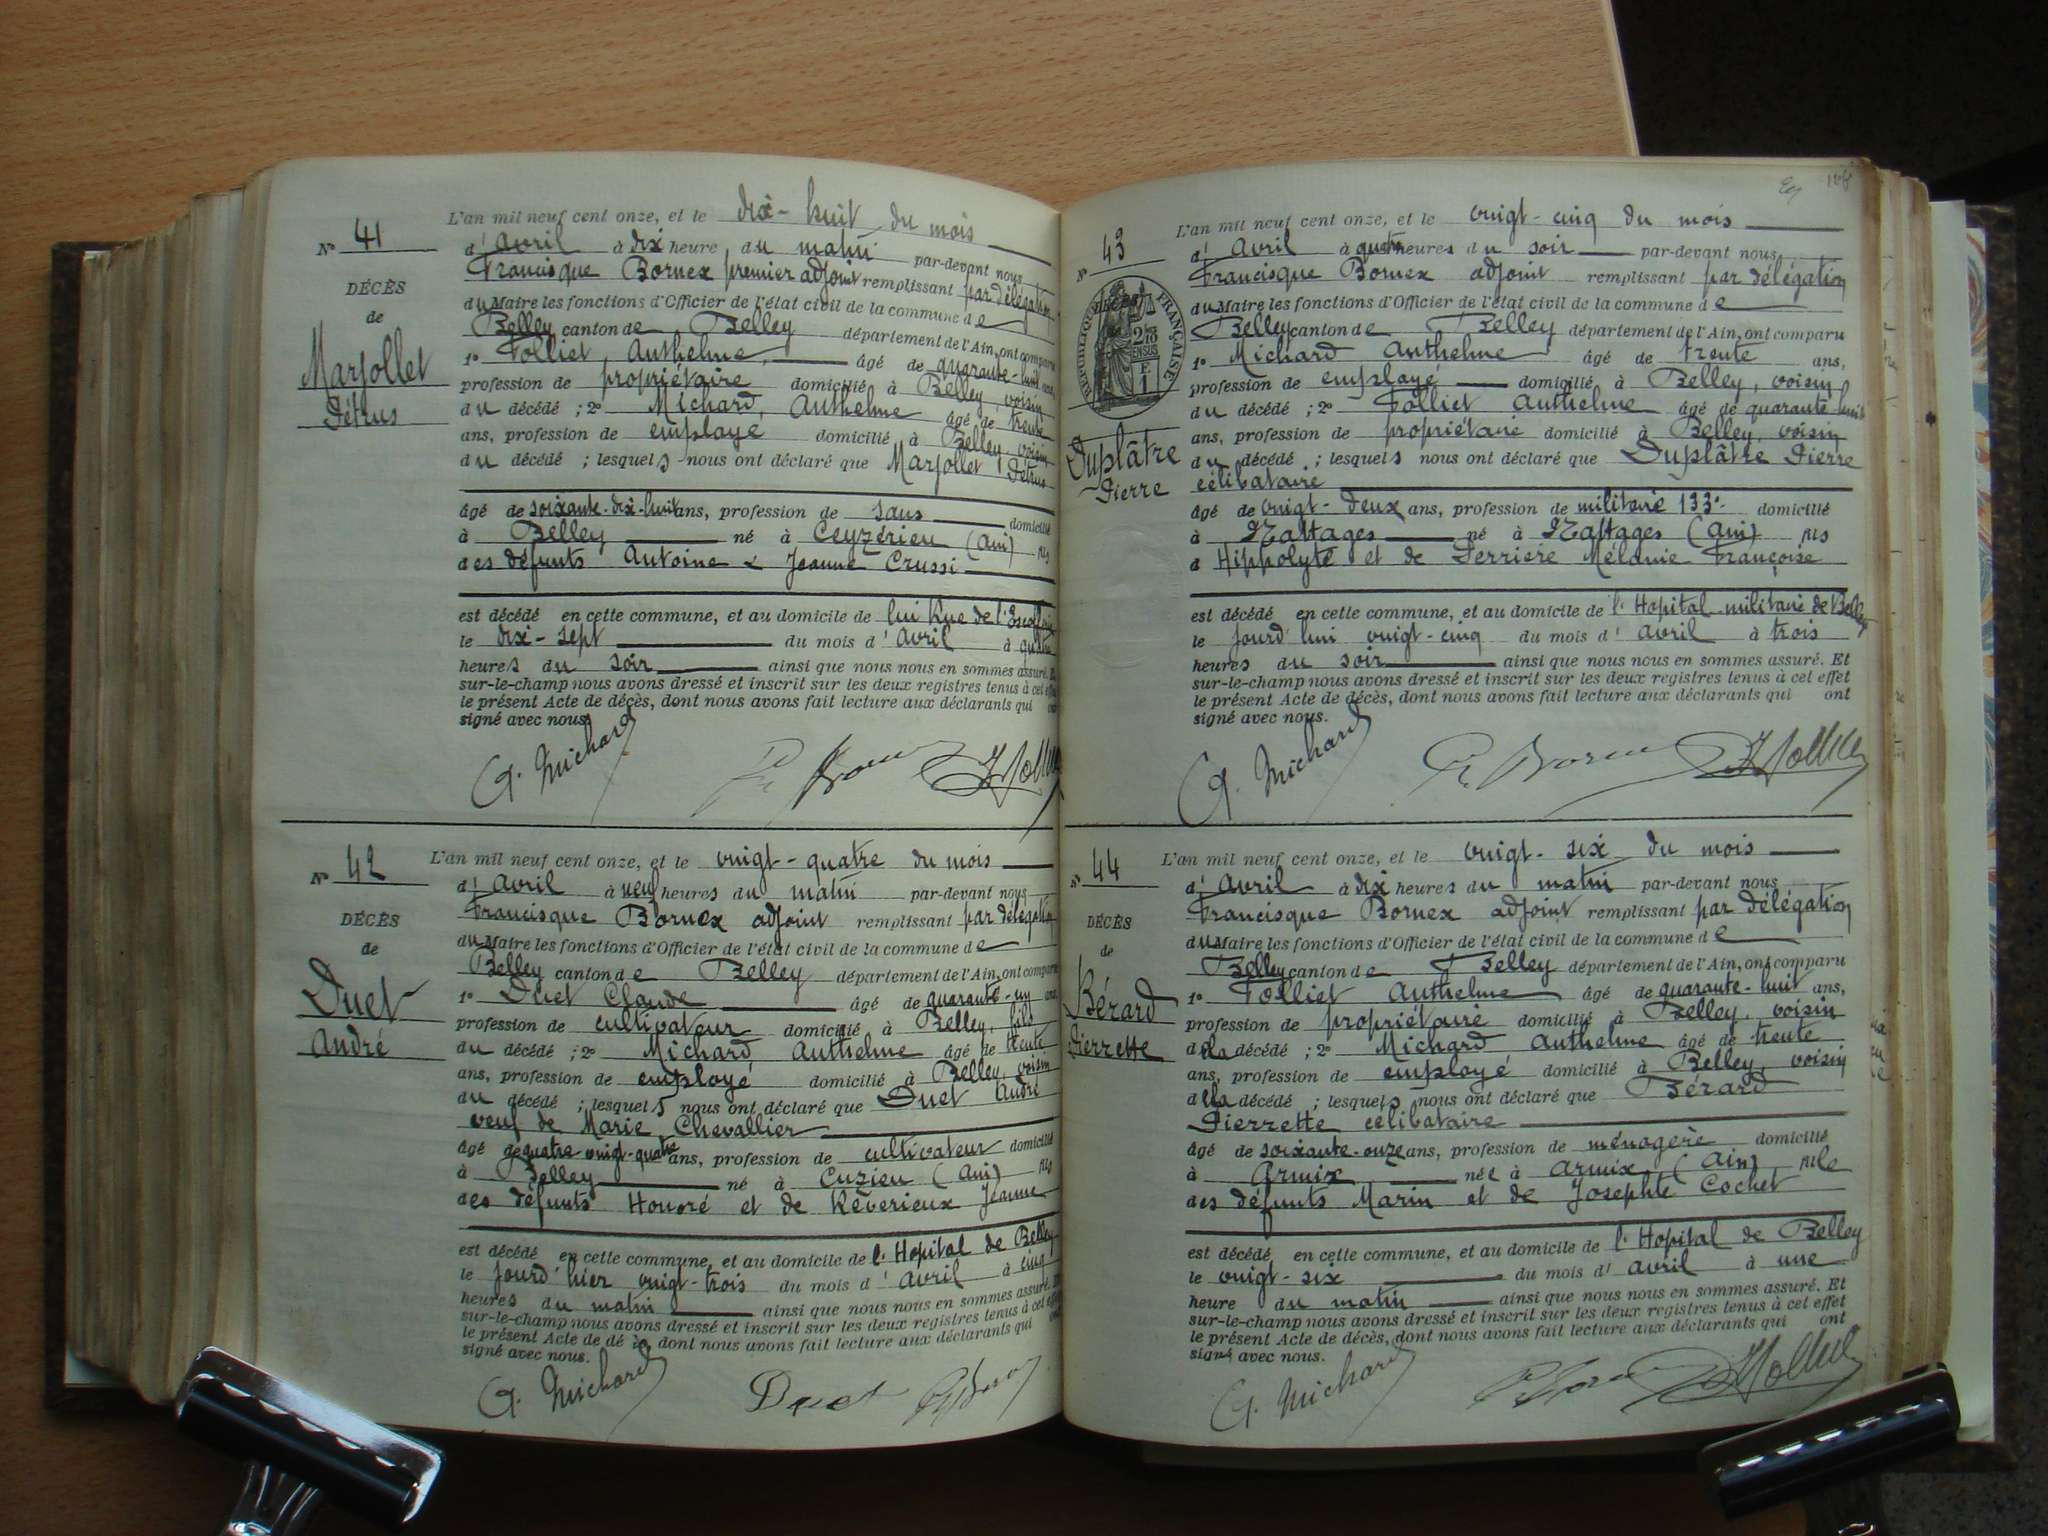 L'an mil neuf cent onze, et le dix-huit du mois
N° 41
d'Avril à dix heure du matin par-devant nous
Francisque Bornex premier adjoint remplissant par délégation
DÉCÈS
du Maire les fonctions d'Officier de l'état civil de la commune de
de
Belley canton de Belley département de l'Ain, ont comparu
Marjollet
Pétrus
1° Folliet, Anthelme, âgé de quarante-huit ans,
profession de propriétaire domicilié à Belley, voisin
du décédé ; 2° Michard, Anthelme âgé de trente
ans, profession de employé domicilié à Belley, voisin
du décédé ; lesquels nous ont déclaré que Marjollet Pétrus
âgé de soixante-dix-huit ans, profession de sans domicilié
à Belley né à Ceyzérieu (Ain) fils
des défunts Antoine & Jeanne Crussi
est décédé en cette commune, et au domicile de lui Rue de
le dix-sept du mois d'Avril à quatre
heures du soir ainsi que nous nous en sommes assuré. Et
sur-le-champ nous avons dressé et inscrit sur les deux registres tenus à cet effet
le présent Acte de décès, dont nous avons fait lecture aux déclarants qui ont
signé avec nous.
A. Michard Fr Bornex Folliet
L'an mil neuf cent onze, et le vingt-quatre du mois
N° 42
d'Avril à neuf heures du matin par-devant nous
Francisque Bornex adjoint remplissant par délégation
DÉCÈS
du Maire les fonctions d'Officier de l'état civil de la commune de
de
Belley canton de Belley département de l'Ain, ont comparu
Duet
André
1° Duet Claude âgé de quarante-un ans,
profession de cultivateur domicilié à Belley, fils
du décédé ; 2° Michard Anthelme âgé de trente
ans, profession de employé domicilié à Belley, voisin
du décédé ; lesquels nous ont déclaré que Duet André
veuf de Marie Chevallier
âgé de quatre vingt-quatre ans, profession de cultivateur domicilié
à Belley né à Cuzieu (Ain) fils
des défunts Honoré et de Rêverieux Jeanne
est décédé en cette commune, et au domicile de l'Hopital de Belley
le jourd'hier vingt-trois du mois d'Avril à cinq
heures du matin ainsi que nous nous en sommes assuré. Et
sur-le-champ nous avons dressé et inscrit sur les deux registres tenus à cet effet
le présent Acte de décès, dont nous avons fait lecture aux déclarants qui ont
signé avec nous.
A. Michard Duet Fr Bornex
L'an mil neuf cent onze, et le vingt-cinq du mois
N° 43
d'Avril à quatre heures du soir par-devant nous
Francisque Bornex adjoint remplissant par délégation
DÉCÈS
RÉPUBLIQUE FRANÇAISE
du Maire les fonctions d'Officier de l'état civil de la commune de
Belley canton de Belley département de l'Ain, ont comparu
1° Michard Anthelme âgé de trente ans,
profession de employé domicilié à Belley, voisin
du décédé ; 2° Folliet Anthelme âgé de quarante-huit
ans, profession de propriétaire domicilié à Belley, voisin
Duplâtre
Pierre
du décédé ; lesquels nous ont déclaré que Duplâtre Pierre
célibataire
âgé de vingt-deux ans, profession de militaire 133e domicilié
à Nattages né à Nattages (Ain) fils
d'Hippolyte et de Perriere Mélanie Françoise
est décédé en cette commune, et au domicile de l'Hopital militaire de Belley
le jourd'hui vingt-cinq du mois d'Avril à trois
heures du soir ainsi que nous nous en sommes assuré. Et
sur-le-champ nous avons dressé et inscrit sur les deux registres tenus à cet effet
le présent Acte de décès, dont nous avons fait lecture aux déclarants qui ont
signé avec nous.
A. Michard Fr Bornex Folliet
L'an mil neuf cent onze, et le vingt-six du mois
N° 44
d'Avril à dix heures du matin par-devant nous
Francisque Bornex adjoint remplissant par délégation
DÉCÈS
du Maire les fonctions d'Officier de l'état civil de la commune de
de
Belley canton de Belley département de l'Ain, ont comparu
Bérard
Pierrette
1° Folliet Anthelme âgé de quarante-huit ans,
profession de propriétaire domicilié à Belley, voisin
de la décédé ; 2° Michard Anthelme âgé de trente
ans, profession de employé domicilié à Belley, voisin
de la décédé ; lesquels nous ont déclaré que Bérard
Pierrette célibataire
âgé de soixante-onze ans, profession de ménagère domicilié
à Armix née à Armix, (Ain) fille
des défunts Marin et de Josephte Cochet
est décédé en cette commune, et au domicile de l'Hopital de Belley
le vingt-six du mois d'Avril à une
heure du matin ainsi que nous nous en sommes assuré. Et
sur-le-champ nous avons dressé et inscrit sur les deux registres tenus à cet effet
le présent Acte de décès, dont nous avons fait lecture aux déclarants qui ont
signé avec nous.
A. Michard Fr Bornex Folliet